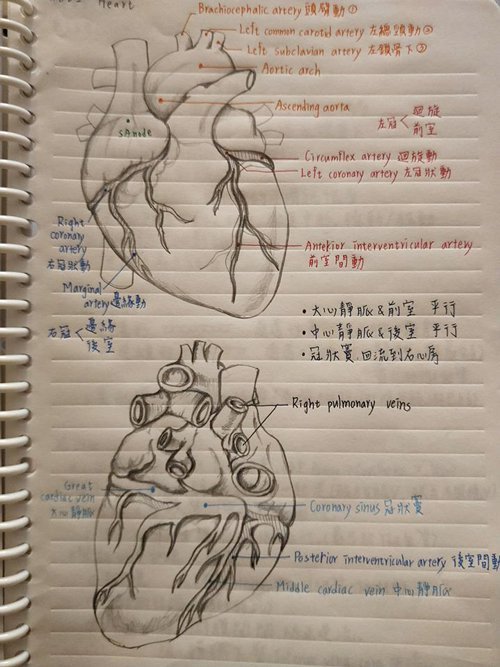 Heart
Brachiocephalic artery 頭臂動①
Left common carotid artery 左總頸動②
Left subclavian artery 左鎖骨下③
Aortic arch
Ascending aorta
左冠 迴旋
前室
SA node
Circumflex artery 迴旋動
Left coronary artery 左冠狀動
Right
coronary
artery
右冠狀動
Anterior interventricular artery
前室間動
Marginal
artery 邊緣動
右冠 邊緣
後室
• 大心靜脈&前室 平行
• 中心靜脈&後室 平行
• 冠狀竇 回流到右心房
Right pulmonary veins
Great
cardiac vein
大心靜脈
Coronary sinus 冠狀竇
Posterior interventricular artery 後室間動
Middle cardiac vein 中心靜脈